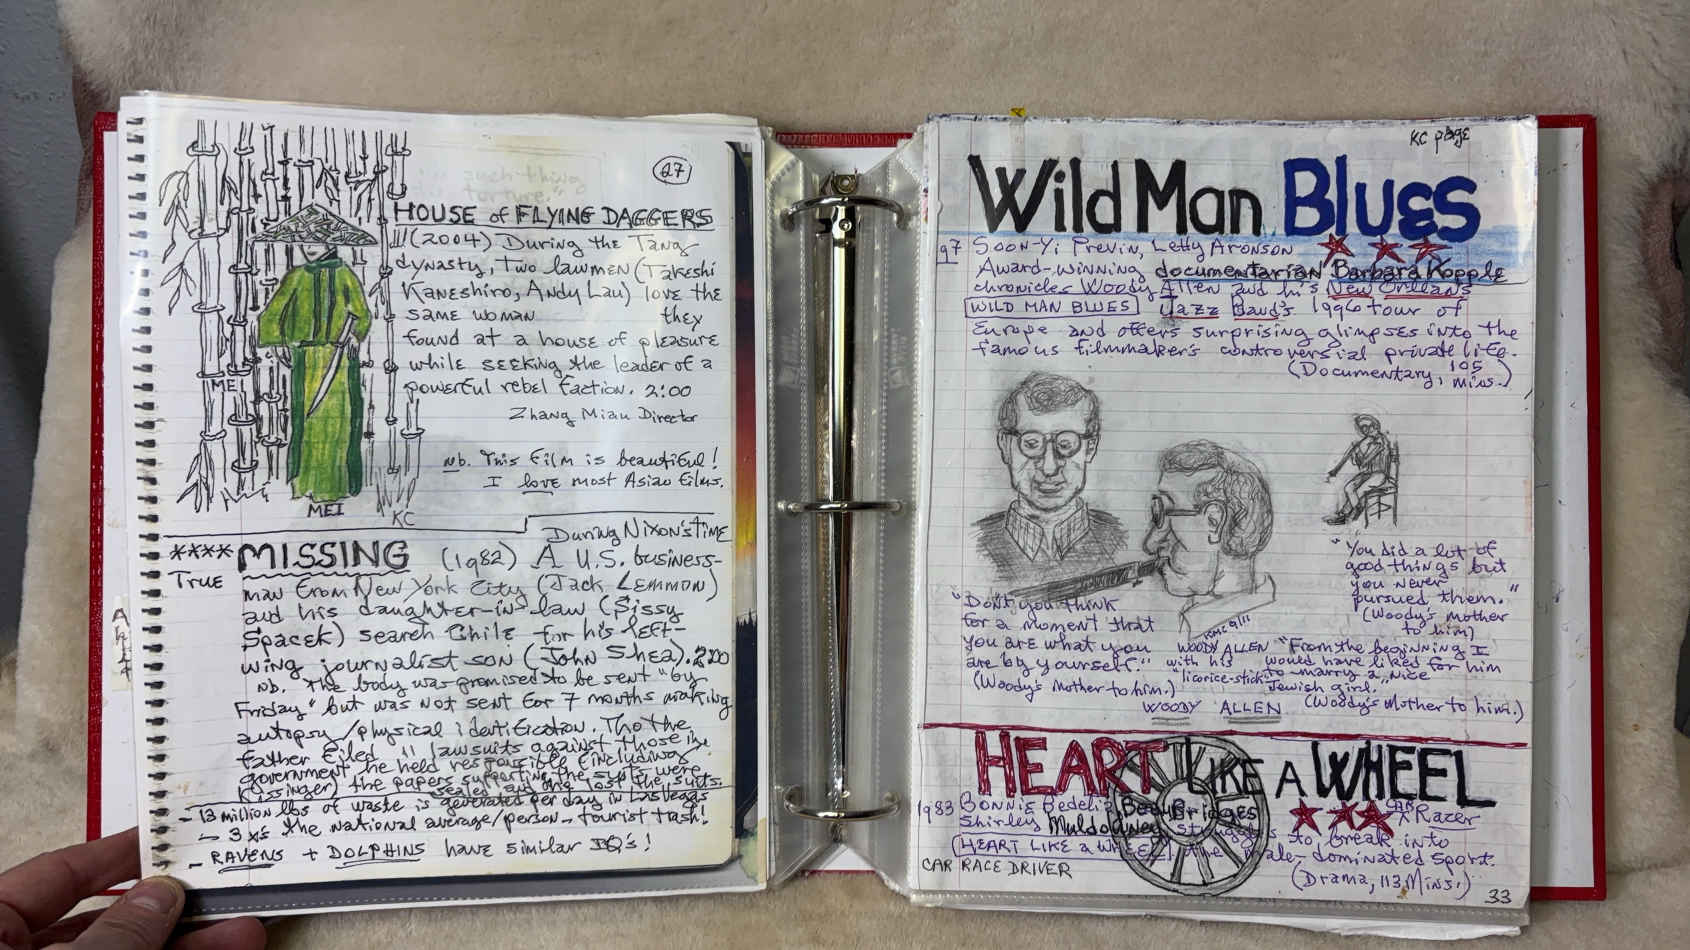 27
HOUSE of FLYING DAGGERS
(2004) During the Tang
dynasty, two lawmen (Takeshi
Kaneshiro, Andy Lau) love the
same woman they
found at a house of pleasure
while seeking the leader of a
powerful rebel faction. 2:00
Zhang Miau Director
nb. This Film is beautiful!
I love most Asian Films.
MEI
MEI
KC
During Nixon's TIME
**** MISSING (1982) A U.S. business-
True
man from New York City (Jack Lemmon)
and his daughter-in-law (Sissy
Spacek) search Chile for his left-
wing journalist son (John Shea). 2:00
nb. The body was promised to be sent "by
Friday" but was not sent for 7 months making
autopsy/physical identification. Tho the
father filed 11 lawsuits against those in
government he held responsible (including
Kissinger) the papers supporting the suits were
sealed and one lost the suits.
- 13 million lbs of waste is generated per day in Las Vegas
→ 3 xs the national average/person - tourist trash!
- RAVENS + DOLPHINS have similar IQ's!
KC page
Wild Man Blues
97 Soon-Yi Previn, Letty Aronson
Award-winning documentarian Barbara Kopple
chronicles Woody Allen and his New Orleans
WILD MAN BLUES Jazz Band's 1996 tour of
Europe and offers surprising glimpses into the
famous filmmaker's controversial private life.
(Documentary, 105 mins.)
"You did a lot of
good things but
you never
pursued them."
(Woody's mother
to him)
"Don't you think
for a moment that
you are what you
are by yourself."
(Woody's Mother to him.)
KMcGill
WOODY ALLEN
with his
licorice-stick
"From the beginning I
would have liked for him
to marry a nice
Jewish girl.
(Woody's Mother to him.)
WOODY ALLEN
HEART LIKE A WHEEL
1983 Bonnie Bedelia, Beau Bridges
CAR Racer
Shirley Muldowney struggles to break into
HEART LIKE A WHEEL the male-dominated sport.
CAR RACE DRIVER
(Drama, 113 Mins.)
33